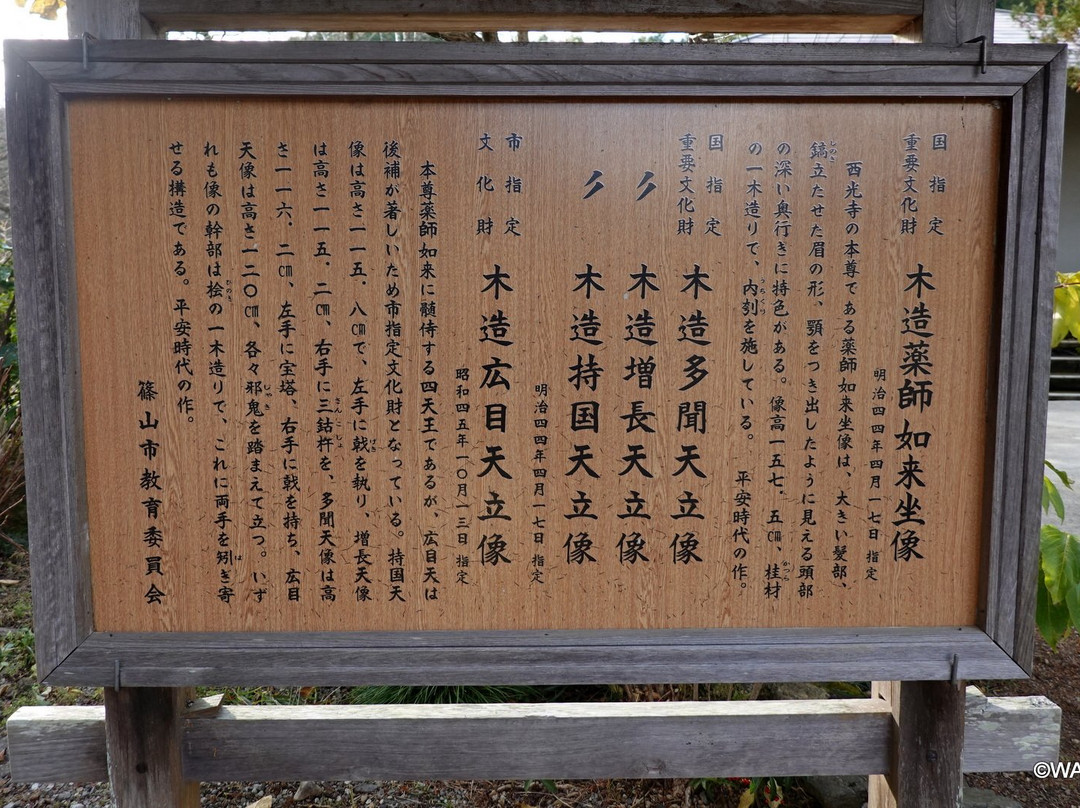 国指定
重要文化財
木造薬師如来坐像
明治四四年四月一七日 指定
西光寺の本尊である薬師如来坐像は、大きい髪部、
鎬立たせた眉の形、顎をつき出したように見える頭部
しのぎ
の深い奥行きに特色がある。像高一五七．五㎝、桂材
かつら
の一木造りで、内刳を施している。 平安時代の作。
うちぐり
国指定
重要文化財
木造多聞天立像
〃 木造増長天立像
〃 木造持国天立像
明治四四年四月一七日 指定
市指定
文化財
木造広目天立像
昭和四五年一〇月一三日 指定
本尊薬師如来に髄侍する四天王であるが、広目天は
後補が著しいため市指定文化財となっている。持国天
像は高さ一一五．八㎝で、左手に戟を執り、増長天像
げき
は高さ一一五．二㎝、右手に三鈷杵を、多聞天像は高
さんこしょ
さ一一六．二㎝、左手に宝塔、右手に戟を持ち、広目
天像は高さ一二〇㎝、各々邪鬼を踏まえて立つ。いず
じゃき
れも像の幹部は桧の一木造りで、これに両手を矧ぎ寄
ひのき
は
せる構造である。平安時代の作。
篠山市教育委員会
©WA